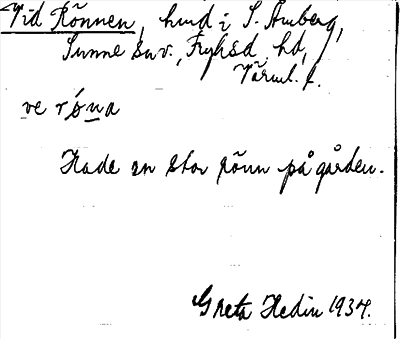 Vid Rönnen, hmd i S. Amberg,
Sunne sn v., Fryksd. hd,
Värml. l.
ve rǿna
Hade en stor rönn på gården.
Greta Hedin 1934.